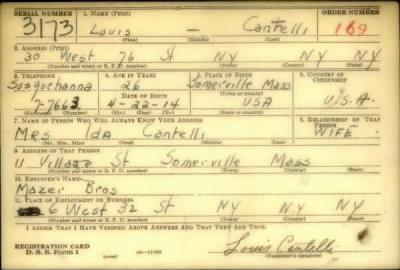 SERIAL NUMBER 1. NAME (Print) ORDER NUMBER
3173 Louis — Cantelli 169
(First) (Middle) (Last)
2. ADDRESS (Print)
30 West 76 St NY NY NY
(Number and street or R. F. D. number) (Town) (County) (State)
3. TELEPHONE 4. AGE IN YEARS 5. PLACE OF BIRTH 6. COUNTRY OF CITIZENSHIP
Susquehanna 26 Somerville Mass
DATE OF BIRTH (Town or county)
7-7663 4-22-14 USA U.S.A.
(Mo.) (Day) (Yr.) (State or country)
7. NAME OF PERSON WHO WILL ALWAYS KNOW YOUR ADDRESS 8. RELATIONSHIP OF THAT PERSON
Mrs Ida Cantelli WIFE
(Mr., Mrs., Miss) (First) (Middle) (Last)
9. ADDRESS OF THAT PERSON
11 St Somerville Mass
(Number and street or R. F. D. number) (Town) (County) (State)
10. EMPLOYER'S NAME
Mazer Bros
11. PLACE OF EMPLOYMENT OR BUSINESS
6 West 32 St NY NY NY
(Number and street or R. F. D. number) (Town) (County) (State)
I AFFIRM THAT I HAVE VERIFIED ABOVE ANSWERS AND THAT THEY ARE TRUE.
REGISTRATION CARD
D. S. S. Form 1 Louis Cantelli
(Registrant's signature)